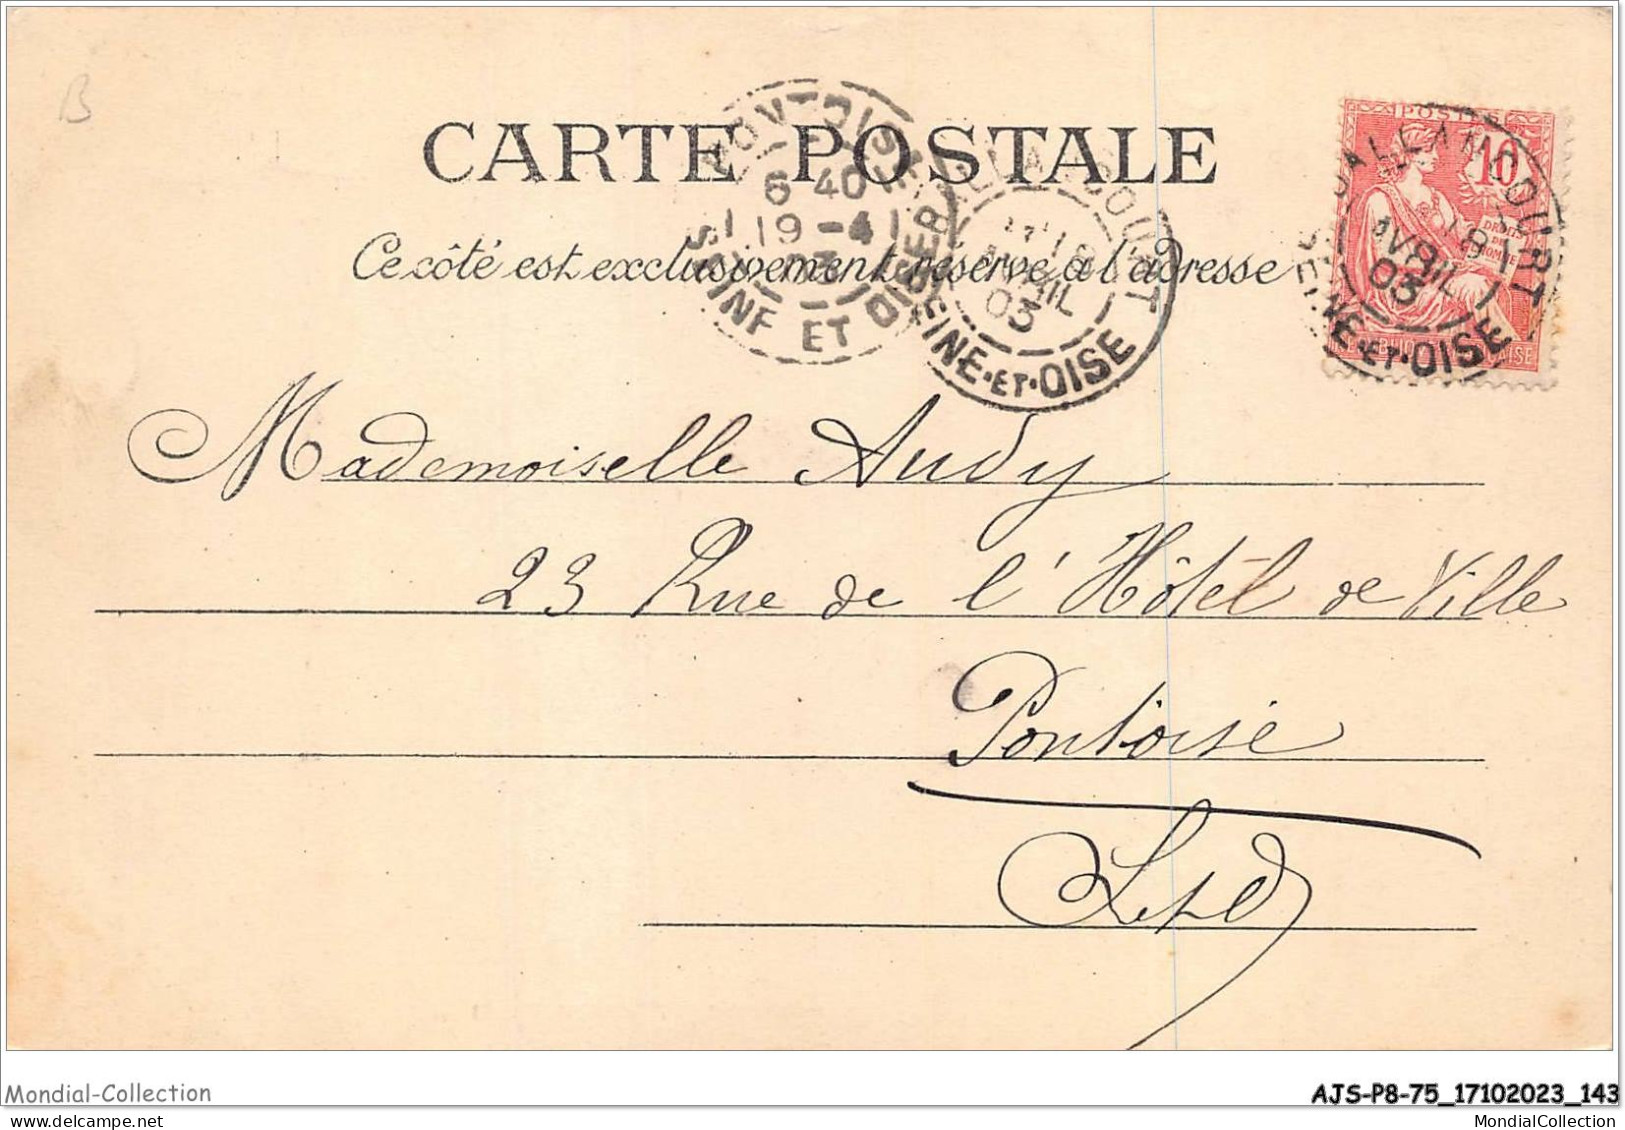 B
CARTE POSTALE
Ce côté est exclusivement réservé à l'adresse
PONTOISE
6 40
19 - 4
03
SEINE ET OISE
18
AVRIL
03
SEINE-ET-OISE
POSTES
10
DROITS
DE
HOMME
18
AVRIL
03
SEINE-ET-OISE
Mademoiselle Audy
23 Rue de l'Hôtel de Ville
Pontoise
Mondial-Collection
AJS-P8-75_17102023_143
MondialCollection